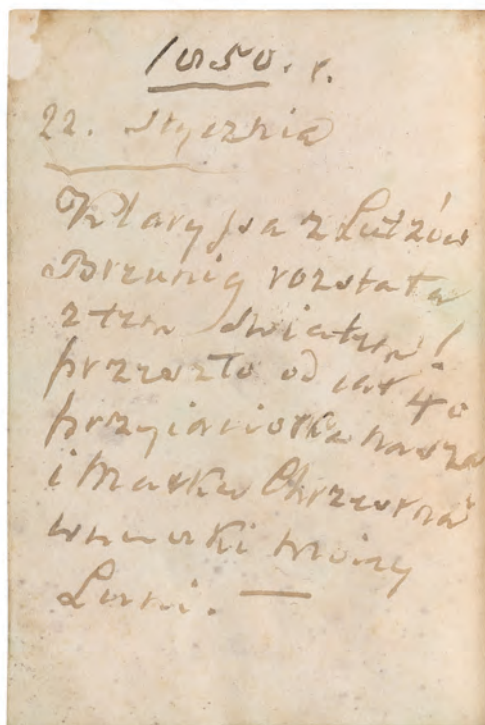 1850. r.
22. Stycznia
Klaryssa z Lutzów
Breunig rozstała
z tym Swiatem!
przeszło od lat 40
przyiaciołka nasza
i Matka Chrzestna
wnuczki moiey
Luni. —